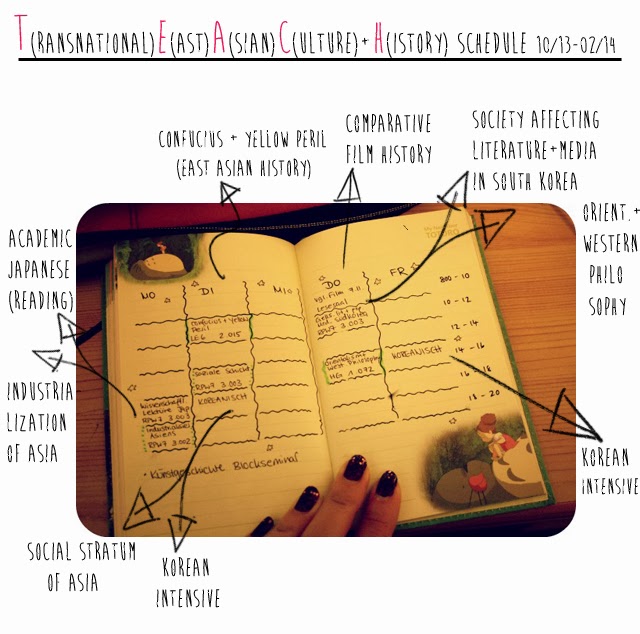 T(RANSNATIONAL)E(AST)A(SIAN)C(ULTURE)+H(ISTORY) SCHEDULE 10/13-02/14
CONFUCIUS + YELLOW PERIL
(EAST ASIAN HISTORY)
COMPARATIVE
FILM HISTORY
SOCIETY AFFECTING
LITERATURE+MEDIA
IN SOUTH KOREA
ORIENT.+
WESTERN
PHILO
SOPHY
ACADEMIC
JAPANESE
(READING)
INDUSTRIA
LIZATION
OF ASIA
SOCIAL STRATUM
OF ASIA
KOREAN
INTENSIVE
KOREAN
INTENSIVE
TOTORO
MO DI MI DO FR
800 - 10
10 - 12
12 - 14
14 - 16
16 - 18
18 - 20
Confucius + Yellow
Peril
LEG 2.015
Soziale Schicht
RPW7 3.003
KOREANISCH
Lektüre Jap
RPW7 3.003
Asiens
RPW7 3.002
Film 9.11
Lesesaal
RPW7 3.003
West. Philosophy
HEG 1.072
KOREANISCH
• Kunstgeschichte Blockseminar